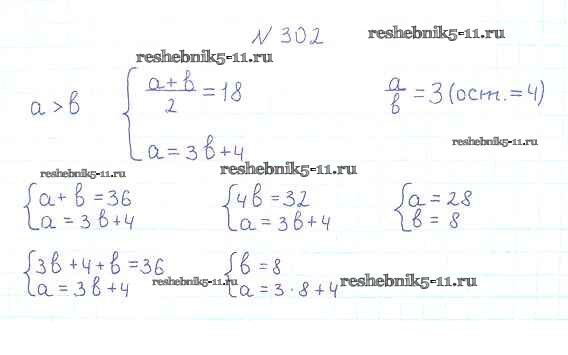 N 302
reshebnik5-11.ru
reshebnik5-11.ru
a > b
{ (a+b)/2 = 18
a = 3b+4
a/b = 3 (ост.=4)
reshebnik5-11.ru
reshebnik5-11.ru
reshebnik5-11.ru
{ a+b=36
a=3b+4
{ 4b=32
a=3b+4
{ a=28
b=8
{ 3b+4+b=36
a=3b+4
{ b=8
a=3·8+4
reshebnik5-11.ru
reshebnik5-11.ru